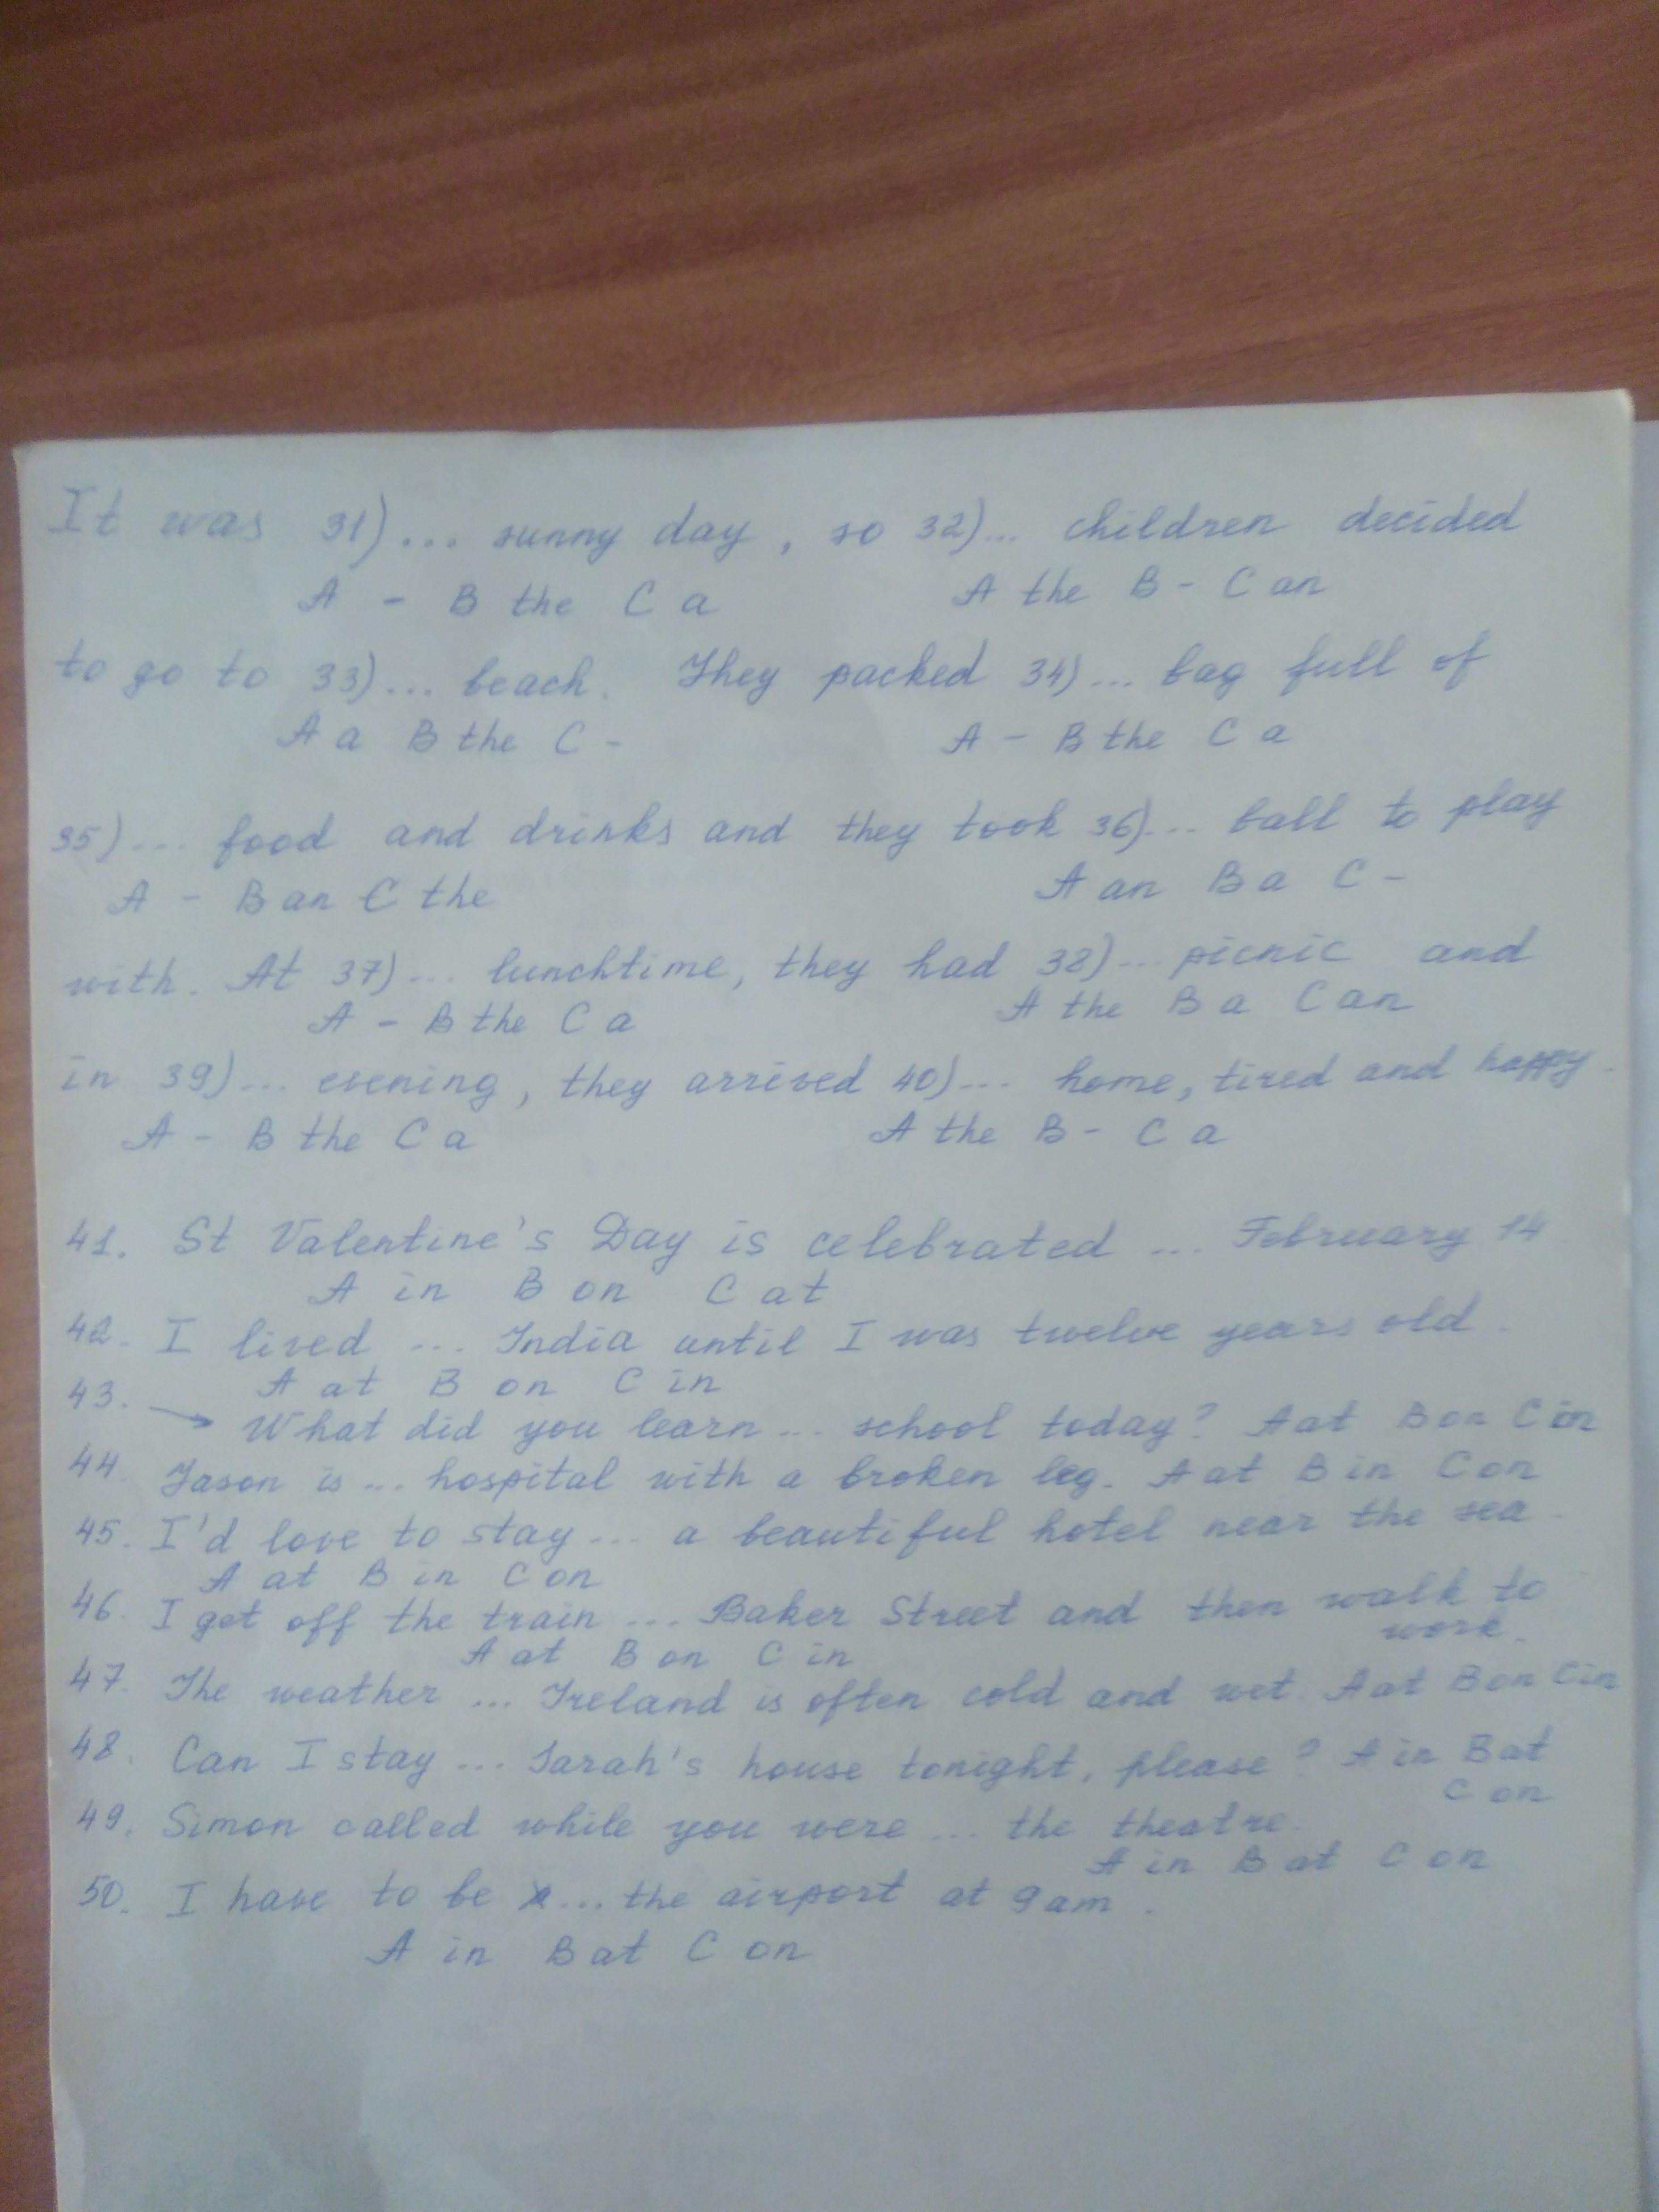 It was 31)... sunny day, so 32)... children decided
A - B the C a A the B - C an
to go to 33)... beach. They packed 34)... bag full of
A a B the C - A - B the C a
35)... food and drinks and they took 36)... ball to play
A - B an C the A an B a C -
with. At 37)... lunchtime, they had 38)... picnic and
A - B the C a A the B a C an
in 39)... evening, they arrived 40)... home, tired and happy.
A - B the C a A the B - C a
41. St Valentine's Day is celebrated ... February 14.
A in B on C at
42. I lived ... India until I was twelve years old.
A at B on C in
43. → What did you learn ... school today? A at B on C in
44. Jason is ... hospital with a broken leg. A at B in C on
45. I'd love to stay ... a beautiful hotel near the sea.
A at B in C on
46. I get off the train ... Baker Street and then walk to
work.
A at B on C in
47. The weather ... Ireland is often cold and wet. A at B on C in
48. Can I stay ... Sarah's house tonight, please? A in B at
C on
49. Simon called while you were ... the theatre.
A in B at C on
50. I have to be ... the airport at 9am.
A in B at C on